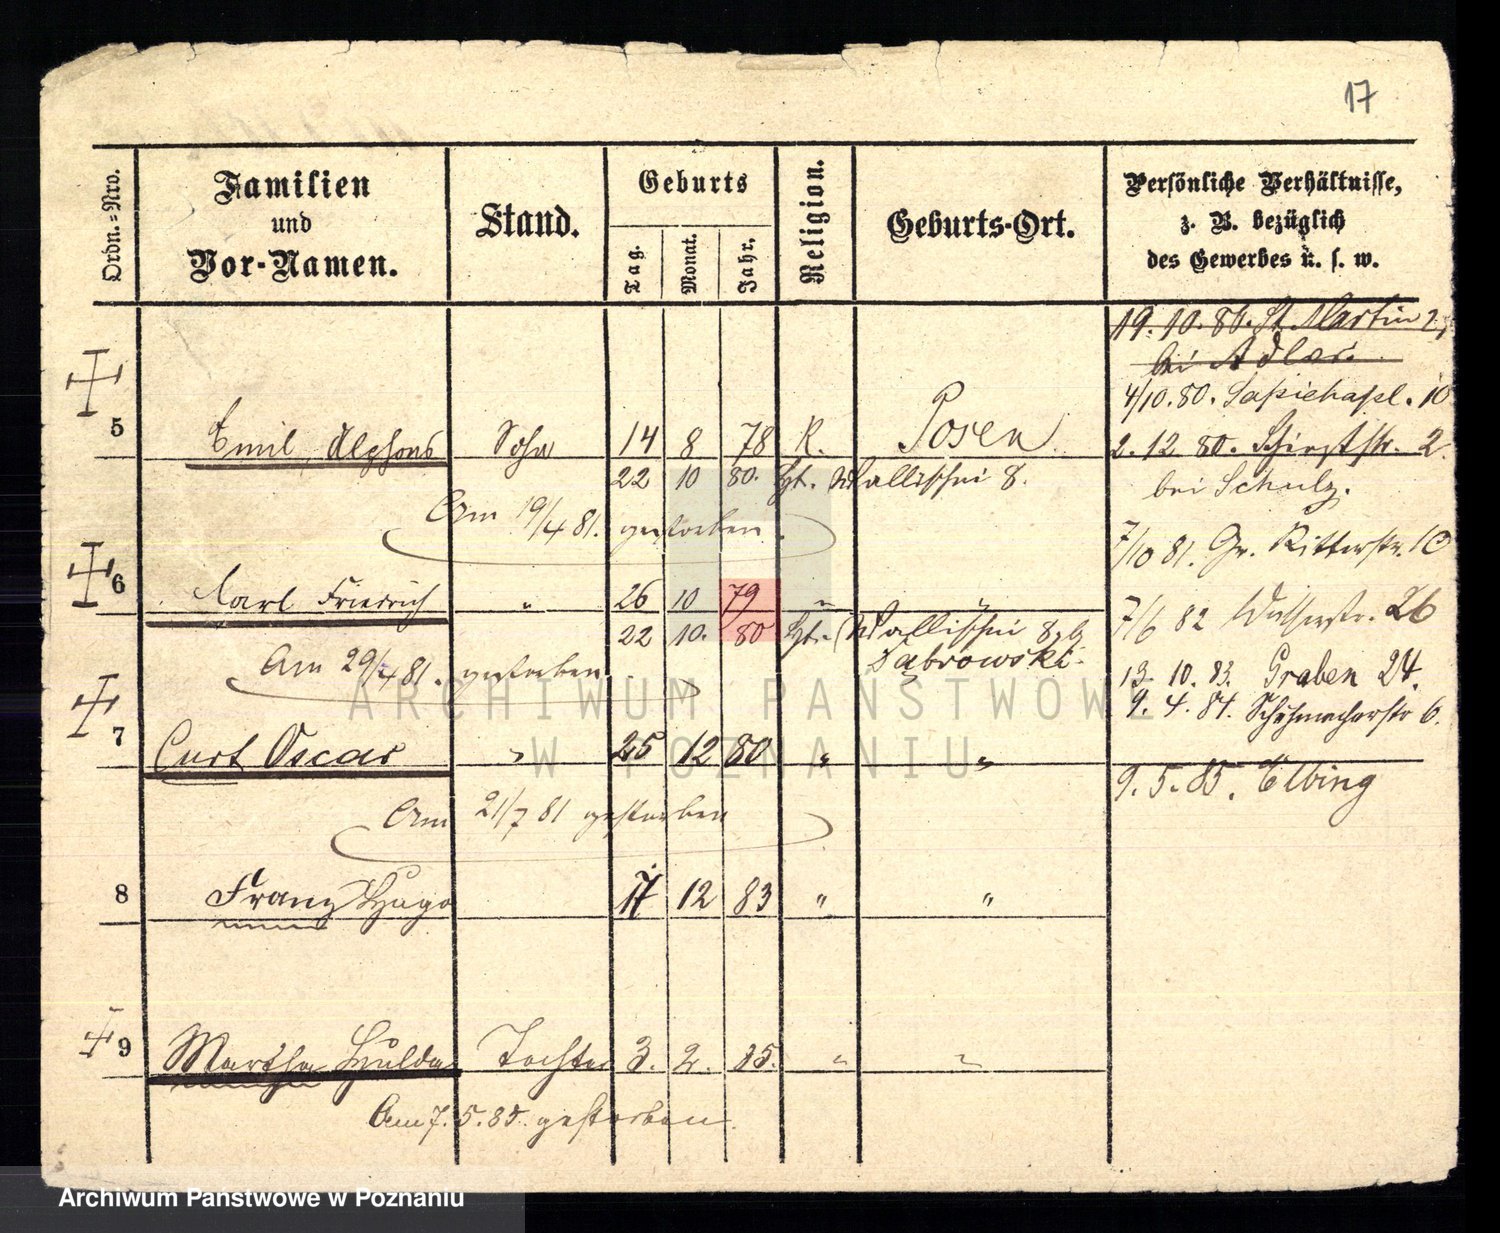 17
Ordn.=Nro.
Familien
und
Vor-Namen.
Stand.
Geburts
Tag.
Monat.
Jahr.
Religion.
Geburts-Ort.
Persönliche Verhältnisse,
z. B. bezüglich
des Gewerbes u. s. w.
19. 10. 80. St. Martin 2,
bei Adler.
4/10. 80. Sapiehapl. 10
5 Emil, Alphons Sohn 14 8 78 K. Posen
2. 12 80. 2.
22 10 80. Wallischei 8.
bei Schulz.
Am 19/4 81. gestorben
7/10 81. Gr. Ritterstr. 10
6 Carl Friedrich " 26 10 79 " "
7/6 82 26
22 10. 80 Wallischei 8, b
Dabrowski.
Am 29/4 81. gestorben
13. 10. 83. Graben 24.
9. 4. 84. Schuhmacherstr 6.
7 Curt Oscar " 25 12 80 " "
9. 5. 85. Elbing
Am 21/7 81 gestorben
8 Franz Hugo 17 12 83 " "
9 Martha Hulda Tochter 3. 2. 85. " "
Am 7. 5. 85. gestorben.
ARCHIWUM PAŃSTWOWE
W POZNANIU
Archiwum Państwowe w Poznaniu